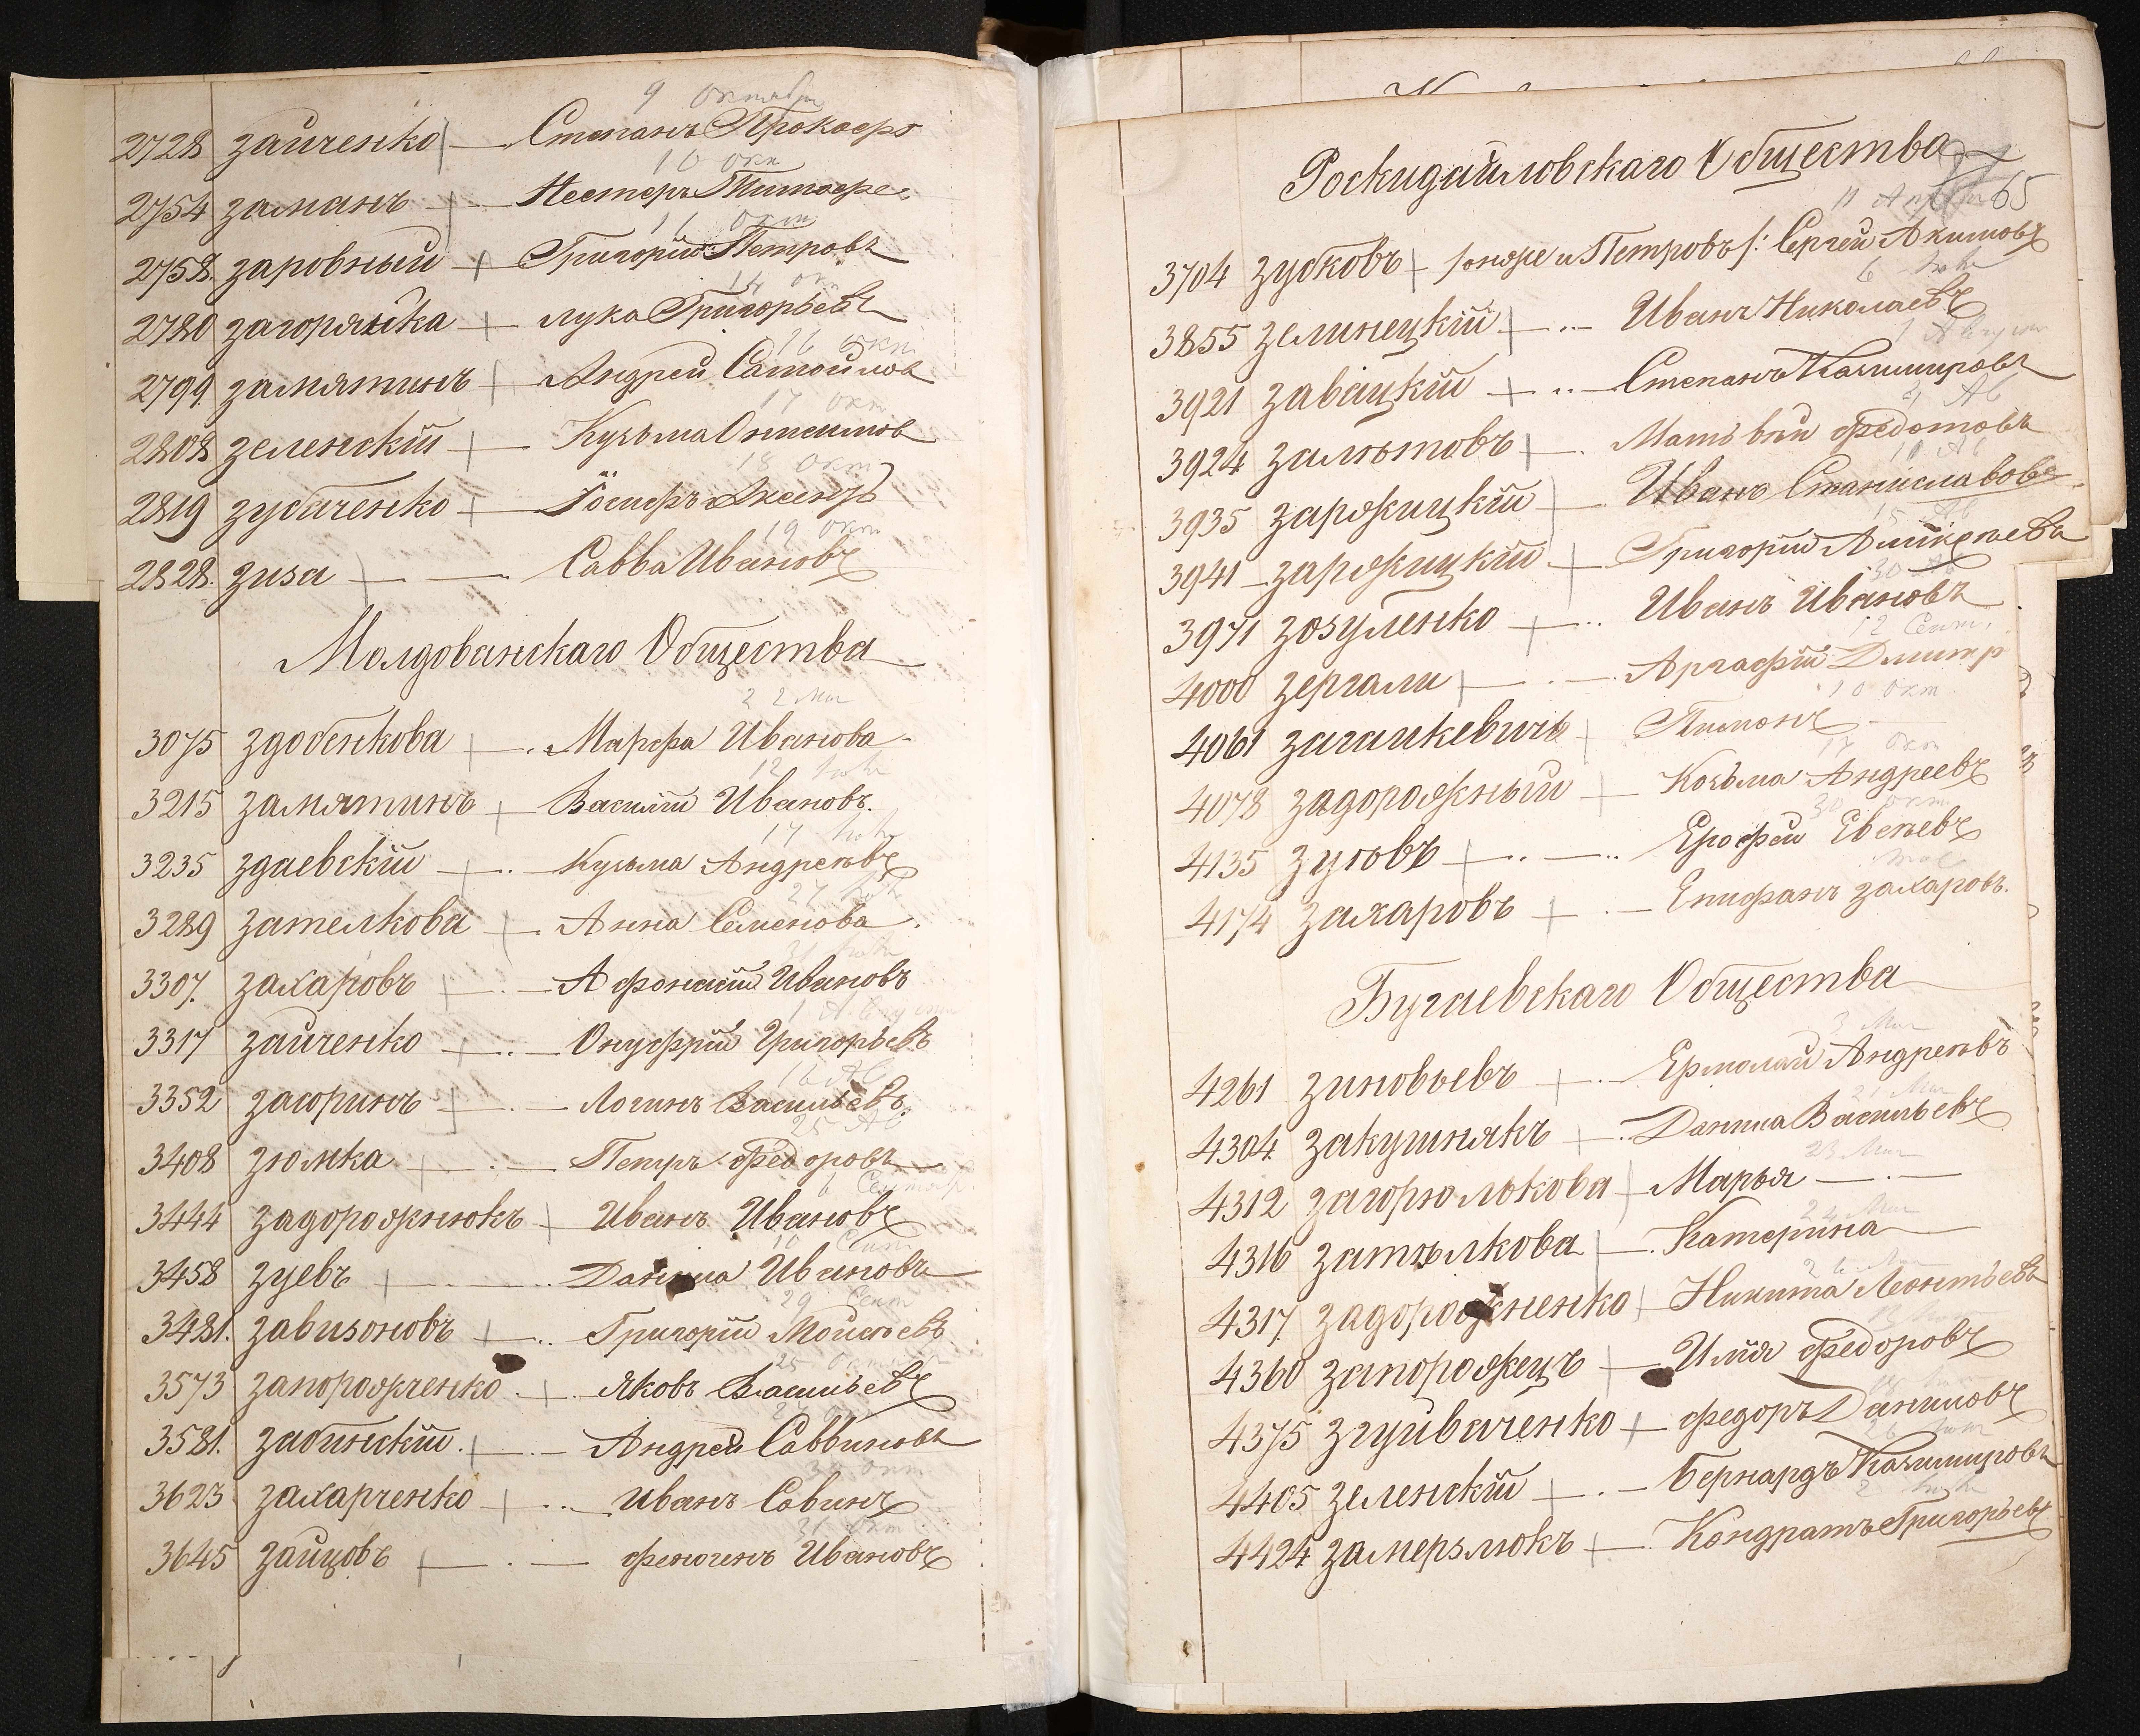 9 Октября
2728 Зайченко — Степанъ Прокофь
10 Окт
2754 Заманъ — Нестеръ Тимофе.
11 Окт
2758. Заровный — Григорій Петровъ
14 Ок
2780 Загоряйка — Лука Григорьевъ
16 Окт
2799. Замятинъ — Андрей Самойлов
17 Окт
2808 Зеленскій — Кузьма Онисимов
18 Окт
2819 Зубаченко — Іосифъ Аксент
19 Окт
2828. Зиза — — Савва Ивановъ
Молдованскаго Общества
22 Мая
3075 Здобенкова — Марфа Иванова
12 Іюня
3215 Замятинъ — Василій Ивановъ.
17
3235 Здаевскій — Кузьма Андреевъ
27
3289 Зателкова — Анна Семенова.
31
3307. Захаровъ — Афонасій Ивановъ
1 Августа
3317 Зайченко — Онуфрій Григорьевъ
16 Ав
3352 Засоринъ — Логинъ Васильевъ.
25 Ав
3408 Зюмка — Петръ Федоровъ
6 Сентяр.
3444 Задорожнюкъ — Иванъ Ивановъ
10 Сент
3458 Зуевъ — Данила Ивановъ
29 Сент
3481. Завизоновъ — Григорій Мойсеевъ
25 Октября
3573 Запорожченко — Яковъ Васильевъ
27
3581. Забинскій. — Андрей Саввиновъ
30 Окт
3623 Захарченко — Иванъ Савинъ
31 Окт
3645 Зайцовъ — Феногенъ Ивановъ
Роскидайловскаго Общества
65
11 Апреля
3704 Зусковъ — /: онъ же и Петровъ /: Сергей Акимовъ
6
3855 Зелинецкій — Иванъ Николаевъ
1 Августа
3921 Завацкій — Степанъ Казимировъ
2 Ав
3924 Залѣтовъ — Матвѣй Федотовъ
11 Ав
3935 Заржицкій — Иванъ Станиславовъ
15 Ав
3941 — Заржицкій — Григорій Алексѣевъ
30 Ав
3971 Зозуленко — Иванъ Ивановъ
12 Сент.
4000 Зергали — Аргафій Дмитр
10 Окт.
4061 Загайкевичъ — Пимонъ
17 Окт
4078 Задорожный — Козьма Андреевъ
30 Окт
4135 Зуювъ — Ерофей Евсѣевъ
4174 Захаровъ — Епифанъ Захаровъ.
Бугаевскаго Общества
3 Мая
4261 Зиновьевъ — Ермолай Андреевъ
21 Мая
4304 Закушнякъ — Данила Васильевъ
23 Мая
4312 Загорюлькова — Марья —
24 Мая
4316 Затѣлкова — Катерина
26 Мая
4317. Задорожненко — Никита Леонтьевъ
4360 Запорожецъ — Илья Федоровъ
4375 Згуйваченко — Федоръ Даниловъ
26
4405 Зеленскій — Бернардъ Казимировъ
2
4424 Замерзлюкъ — Кондратъ Григорьевъ